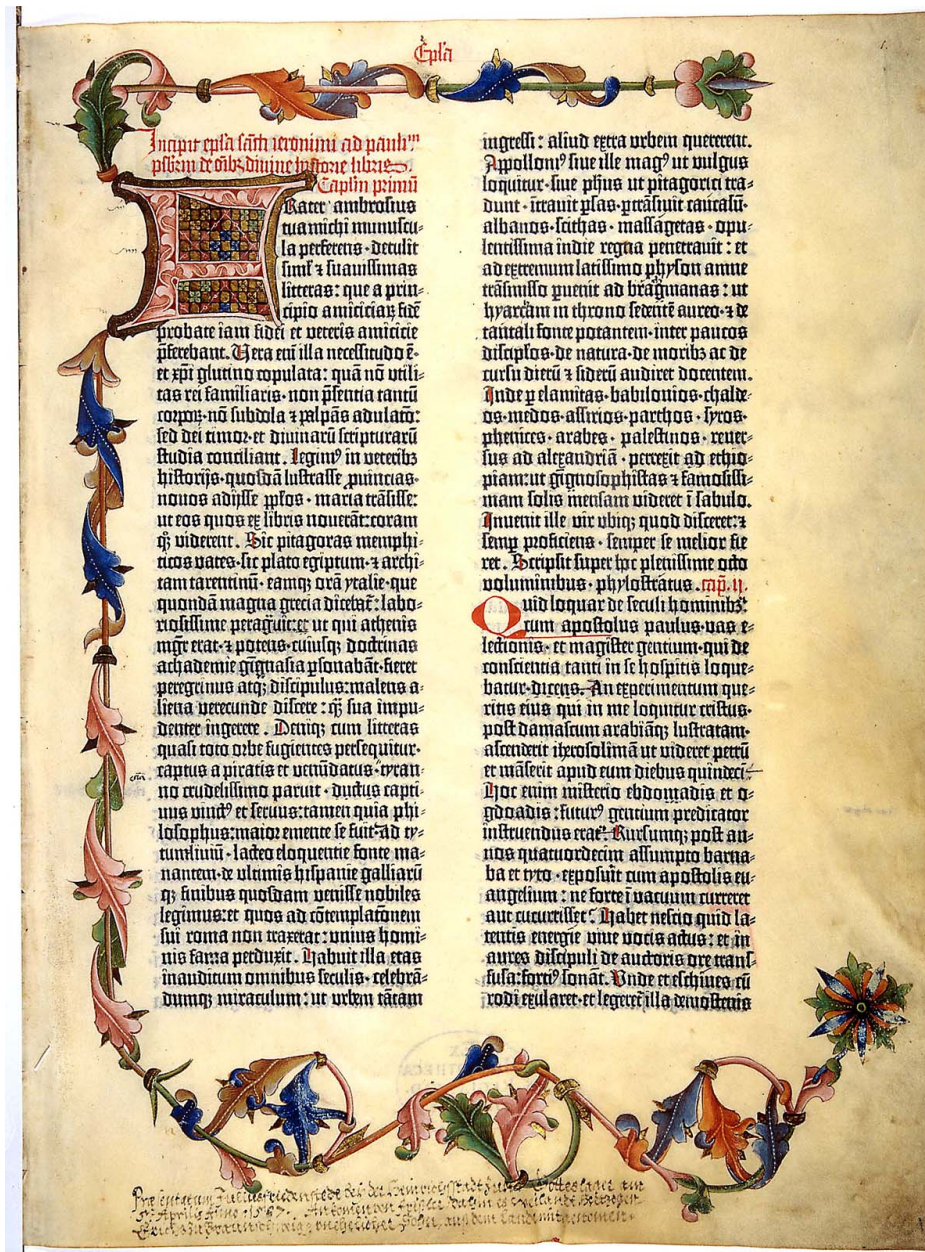 Epl̅a
Incipit epl̅a sāti ieronimi ad pauli͞ᵘᵐ
p̅sbit̅m de om̅ibꝫ diuine hystorie libris
Capl̅m primū
FRater ambrosius
tua michi munuscu-
la perferens · detulit
siml̅ ⁊ suauissimas
litteras: que a prin-
cipio amiciciaꝝ fidē
probate iam fidei et veteris amicicie
p̅ferebant. Uera eni̅ illa necessitudo ē·
et xp̅i glutino copulata: quā nō utili-
tas rei familiaris· non p̅sentia tantū
corpoꝝ· nō subdola ⁊ palpās adulatō:
sed dei timor· et diuinarū scripturarū
studia conciliant. Legimꝰ in veteribꝫ
historijs· quosdā lustrasse ꝓuincias·
nouos adijsse pp̅los· maria trāsisse:
ut eos quos ex libris nouerāt: coram
qꝫ viderent. Sic pitagoras memphi-
ticos vates· sic plato egiptum· ⁊ archi-
tam tarentinū· eamqꝫ orā ytalie· que
quondā magna grecia dicebat᷑: labo-
riosissime peragͣuit: et ut qui athenis
mgr̅ erat· ⁊ potens· cuiusqꝫ doctrinas
achademie gi̅gnasia ꝑsonabāt· fieret
peregrinus atqꝫ discipulus: malens a-
liena verecunde discere: qꝫ̅ sua impu-
denter ingerere. Deniqꝫ cum litteras
quasi toto orbe fugientes persequitur·
captus a piratis et venūdatus· tyran-
no crudelissimo paruit· ductus capti-
uus vinctꝰ et seruus: tamen quia phi-
losophus: maior emente se fuit· ad ty-
tumliuiū· lacteo eloquentie fonte ma-
nantem· de ultimis hispanie galliarū
qꝫ finibus quosdam venisse nobiles
legimus: et quos ad cōtemplatōnem
sui roma non traxerat: unius homi-
nis fama perduxit. Habuit illa etas
inauditum omnibus seculis· celebrā-
dumqꝫ miraculum: ut urbem tātam
ingressi: aliud extra urbem quererent.
Apolloniꝰ siue ille magꝰ ut vulgus
loquitur· siue ph̅us ut pitagorici tra-
dunt· ītrauit ꝑsas· ꝑtrāsiuit caucasū·
albanos· scithas· massagetas· opu-
lentissima indie regna penetrauit: et
ad extremum latissimo physon amne
trāsmisso ꝑuenit ad bragmanas: ut
hyarcam in throno sedentē aureo· ⁊ de
tantali fonte potantem· inter paucos
discipl̅os· de natura· de moribꝫ ac de
cursu dierū ⁊ siderū audiret docentem.
Inde ꝑ elamitas· babilonios· chalde-
os· medos· assirios· parthos· syros·
phenices· arabes· palestinos· reuer-
sus ad alexandriā· perrexit ad ethio-
piam: ut gi̅gnosophistas ⁊ famosissi-
mam solis mensam videret ī sabulo.
Inuenit ille vir ubiqꝫ quod disceret: ⁊
semꝑ proficiens· semper se melior fie
ret. Scripsit super hoc plenissime octo
voluminibus· phylostratus. cap̅. II.
Quid loquar de seculi hominibꝫ:
cum apostolus paulus· vas e-
lectionis· et magister gentium· qui de
conscientia tanti in se hospitis loque-
batur· dicens. An experimentum que-
ritis eius qui in me loquitur cristus·
post damascum arabiāqꝫ lustratam·
ascenderit iherosolimā ut videret petrū
et māserit apud eum diebus quindeci̅
Hoc enim misterio ebdomadis et o-
gdoadis: futurꝰ gentium predicator
instruendus erat. Rursumqꝫ post an-
nos quatuordecim assumpto barna-
ba et tyto· exposuit cum apostolis eu-
angelium: ne forte ī vacuum curreret
aut cucurrisset. Habet nescio quid la-
tentis energie viue vocis actus: et in
aures discipuli de auctoris ore trans-
fusa: fortiꝰ sonāt. Unde et eschines cū
rodi exularet· et legeret᷑ illa demostenis